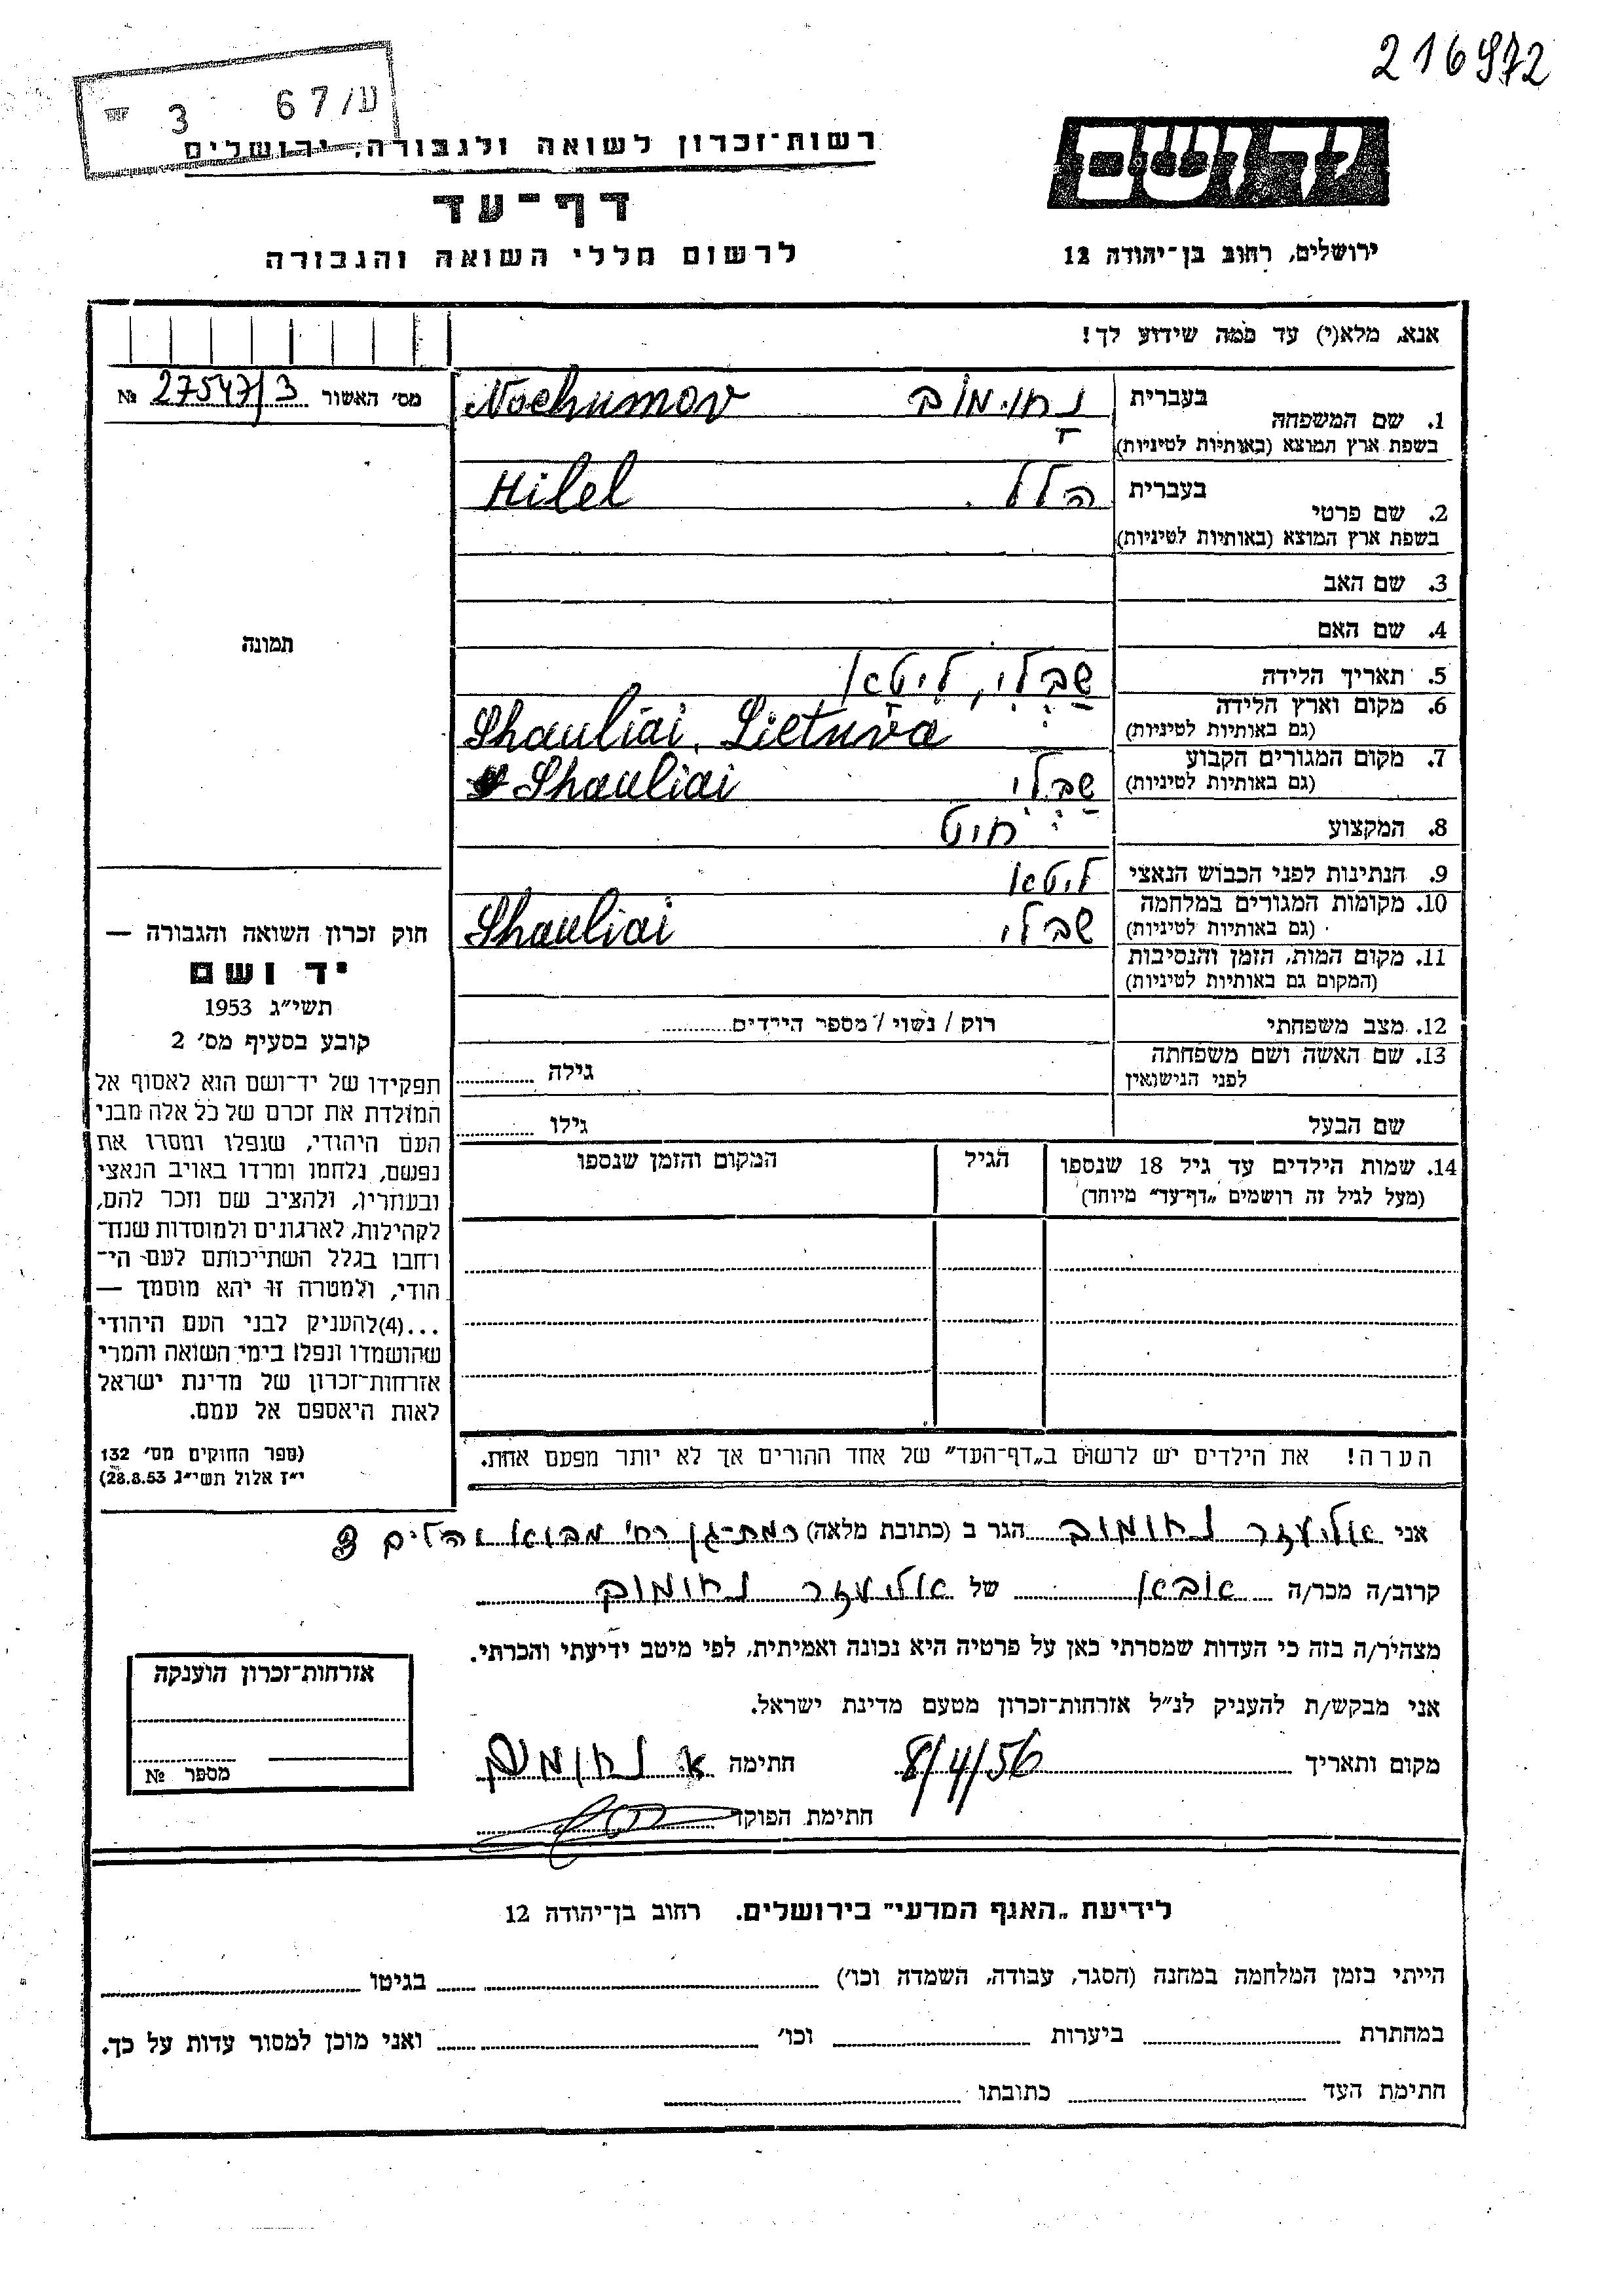 216972
ע/67 3
יד ושם
רשות־זכרון לשואה ולגבורה, ירושלים
דף־עד
לרשום חללי השואה והגבורה
ירושלים, רחוב בן־יהודה 12
אנא, מלא(י) עד כמה שידוע לך!
מס׳ האשור 27547/3 №
1. שם המשפחה בעברית נחומוב Nochumov
בשפת ארץ המוצא (באותיות לטיניות)
2. שם פרטי בעברית הלל Hilel
בשפת ארץ המוצא (באותיות לטיניות)
3. שם האב
4. שם האם
5. תאריך הלידה
שבלי, ליטא
6. מקום וארץ הלידה
(גם באותיות לטיניות) Shauliai, Lietuva
7. מקום המגורים הקבוע
(גם באותיות לטיניות) שבלי Shauliai
8. המקצוע חיט
9. הנתינות לפני הכבוש הנאצי ליטא
10. מקומות המגורים במלחמה
(גם באותיות לטיניות) שבלי Shauliai
11. מקום המות, הזמן והנסיבות
(המקום גם באותיות לטיניות)
12. מצב משפחתי רוק / נשוי / מספר הילדים
13. שם האשה ושם משפחתה
לפני הנישואין גילה
שם הבעל גילו
14. שמות הילדים עד גיל 18 שנספו הגיל המקום והזמן שנספו
(מעל לגיל זה רושמים „דף־עד״ מיוחד)
הערה! את הילדים יש לרשום ב„דף־העד״ של אחד ההורים אך לא יותר מפעם אחת.
תמונה
חוק זכרון השואה והגבורה —
יד ושם
תשי״ג 1953
קובע בסעיף מס׳ 2
תפקידו של יד־ושם הוא לאסוף אל
המולדת את זכרם של כל אלה מבני
העם היהודי, שנפלו ומסרו את
נפשם, נלחמו ומרדו באויב הנאצי
ובעוזריו, ולהציב שם וזכר להם,
לקהילות, לארגונים ולמוסדות שנח־
רחבו בגלל השתייכותם לעם הי־
הודי, ולמטרה זו יהא מוסמך —
...(4)להעניק לבני העם היהודי
שהושמדו ונפלו בימי השואה והמרי
אזרחות־זכרון של מדינת ישראל
לאות היאספם אל עמם.
(ספר החוקים מס׳ 132
י״ז אלול תשי״ג 28.8.53)
אני אליעזר נחומוב הגר ב (כתובת מלאה) רמת-גן רח׳ מבוא
קרוב/ה מכר/ה של אליעזר נחומוב
מצהיר/ה בזה כי העדות שמסרתי כאן על פרטיה היא נכונה ואמיתית, לפי מיטב ידיעתי והכרתי.
אני מבקש/ת להעניק לנ״ל אזרחות־זכרון מטעם מדינת ישראל.
מקום ותאריך 8/4/56 חתימה א. נחומוב
חתימת הפוקד
אזרחות־זכרון הוענקה
מספר №
לידיעת „האגף המדעי״ בירושלים. רחוב בן־יהודה 12
הייתי בזמן המלחמה במחנה (הסגר, עבודה, השמדה וכו׳) בגיטו
במחתרת ביערות וכו׳ ואני מוכן למסור עדות על כך.
חתימת העד כתובתו